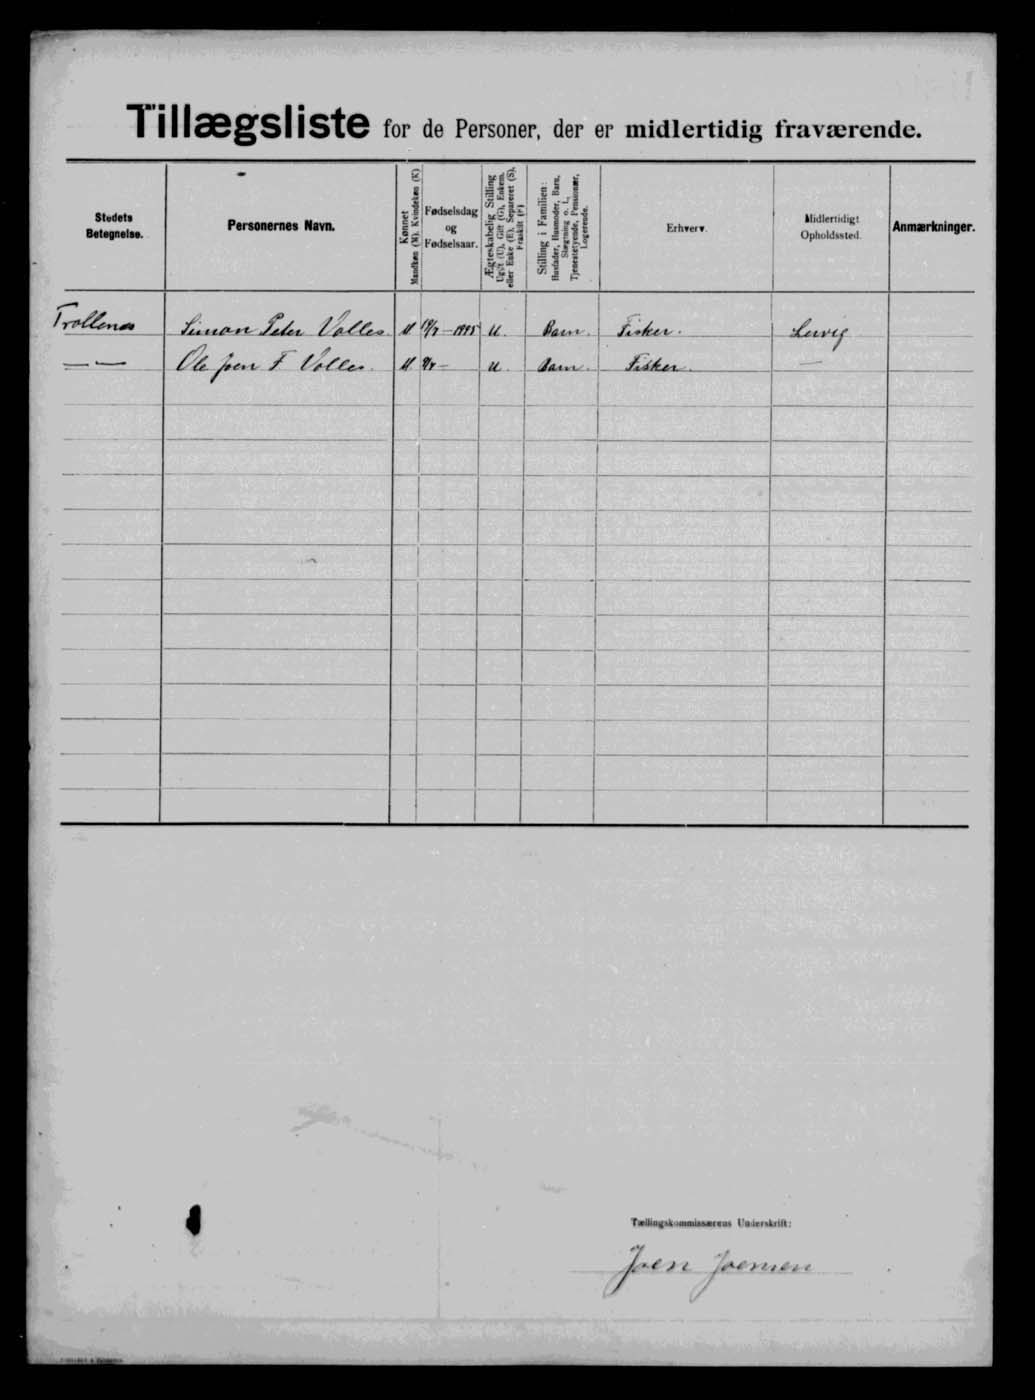 Tillægsliste for de Personer, der er midlertidig fraværende.
Stedets Betegnelse.
Personernes Navn.
Kønnet
Mandkøn (M). Kvindekøn (K)
Fødselsdag
og
Fødselsaar.
Ægteskabelig Stilling
Ugift (U), Gift (G), Enkem.
eller Enke (E), Separeret (S),
Fraskilt (F)
Stilling i Familien:
Husfader, Husmoder, Barn,
Slægtning o. l.,
Tjenestetyende, Pensionær,
Logerende.
Erhverv.
Midlertidigt
Opholdssted.
Anmærkninger.
Trollenes Simon Peter Volles. M 19/7 - 1895 U. Barn. Fisker. Lervig
— — Ole Joen F. Volles. M - U. Barn. Fisker. —
Tællingskommissærens Underskrift:
Joen Joensen